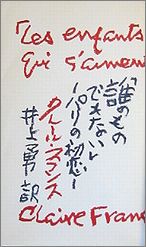 「Les enfants
qui s'aimen
「誰のもの
でもない」
―パリの初恋―
クレール・フランス
井上勇 訳
Claire Fran